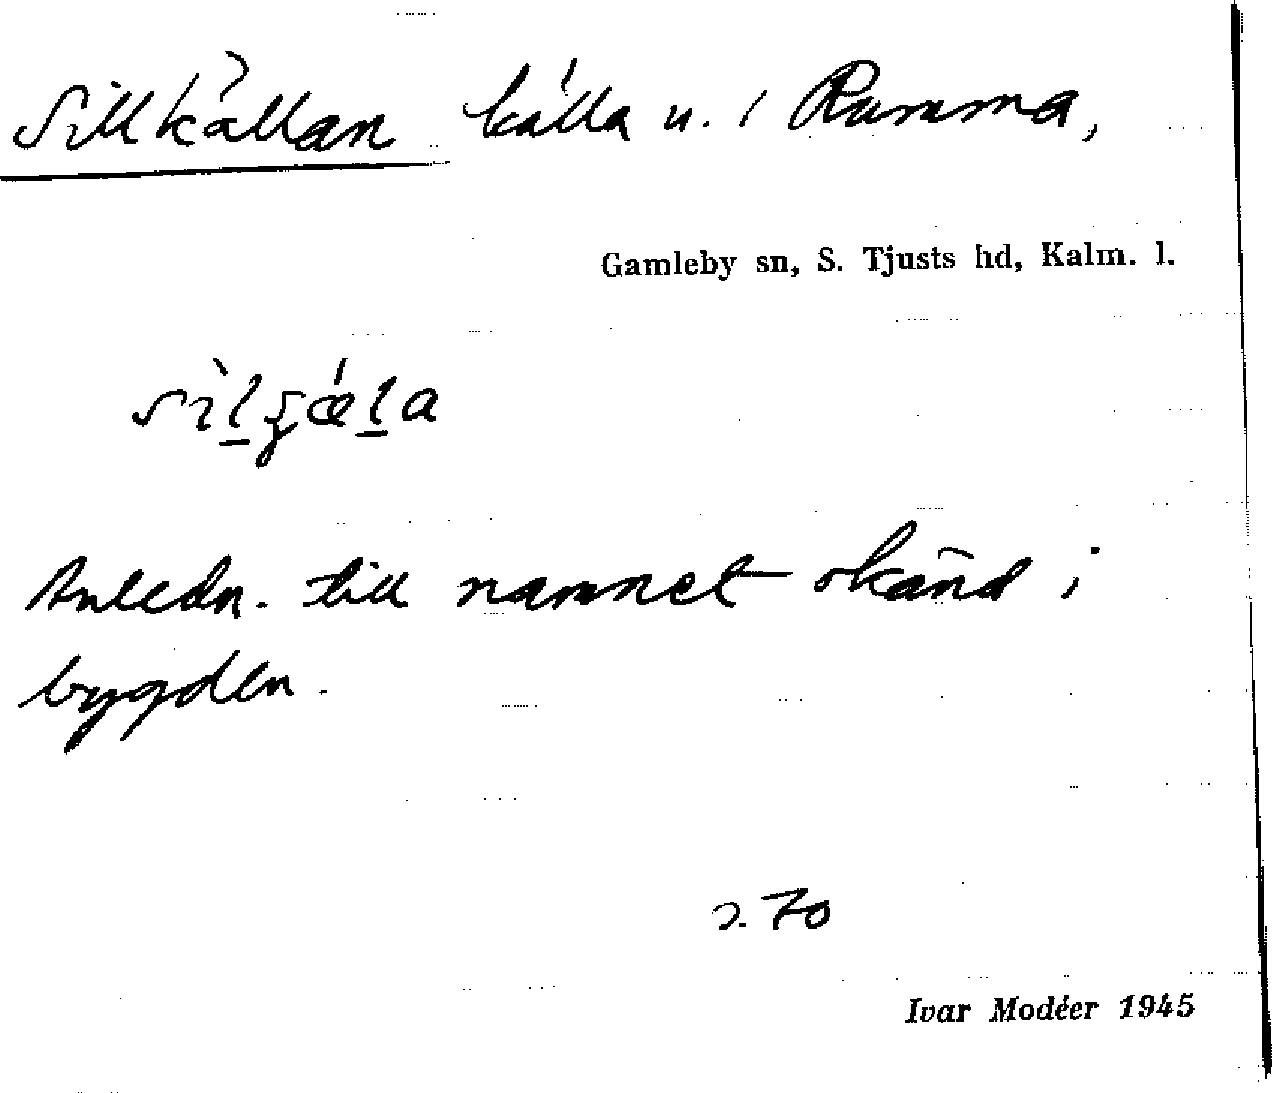 Sillkällan källa u. i Rumma,
Gamleby sn, S. Tjusts hd, Kalm. l.
Anledn. till namnet okänd i
bygden.
s. 70
Ivar Modéer 1945